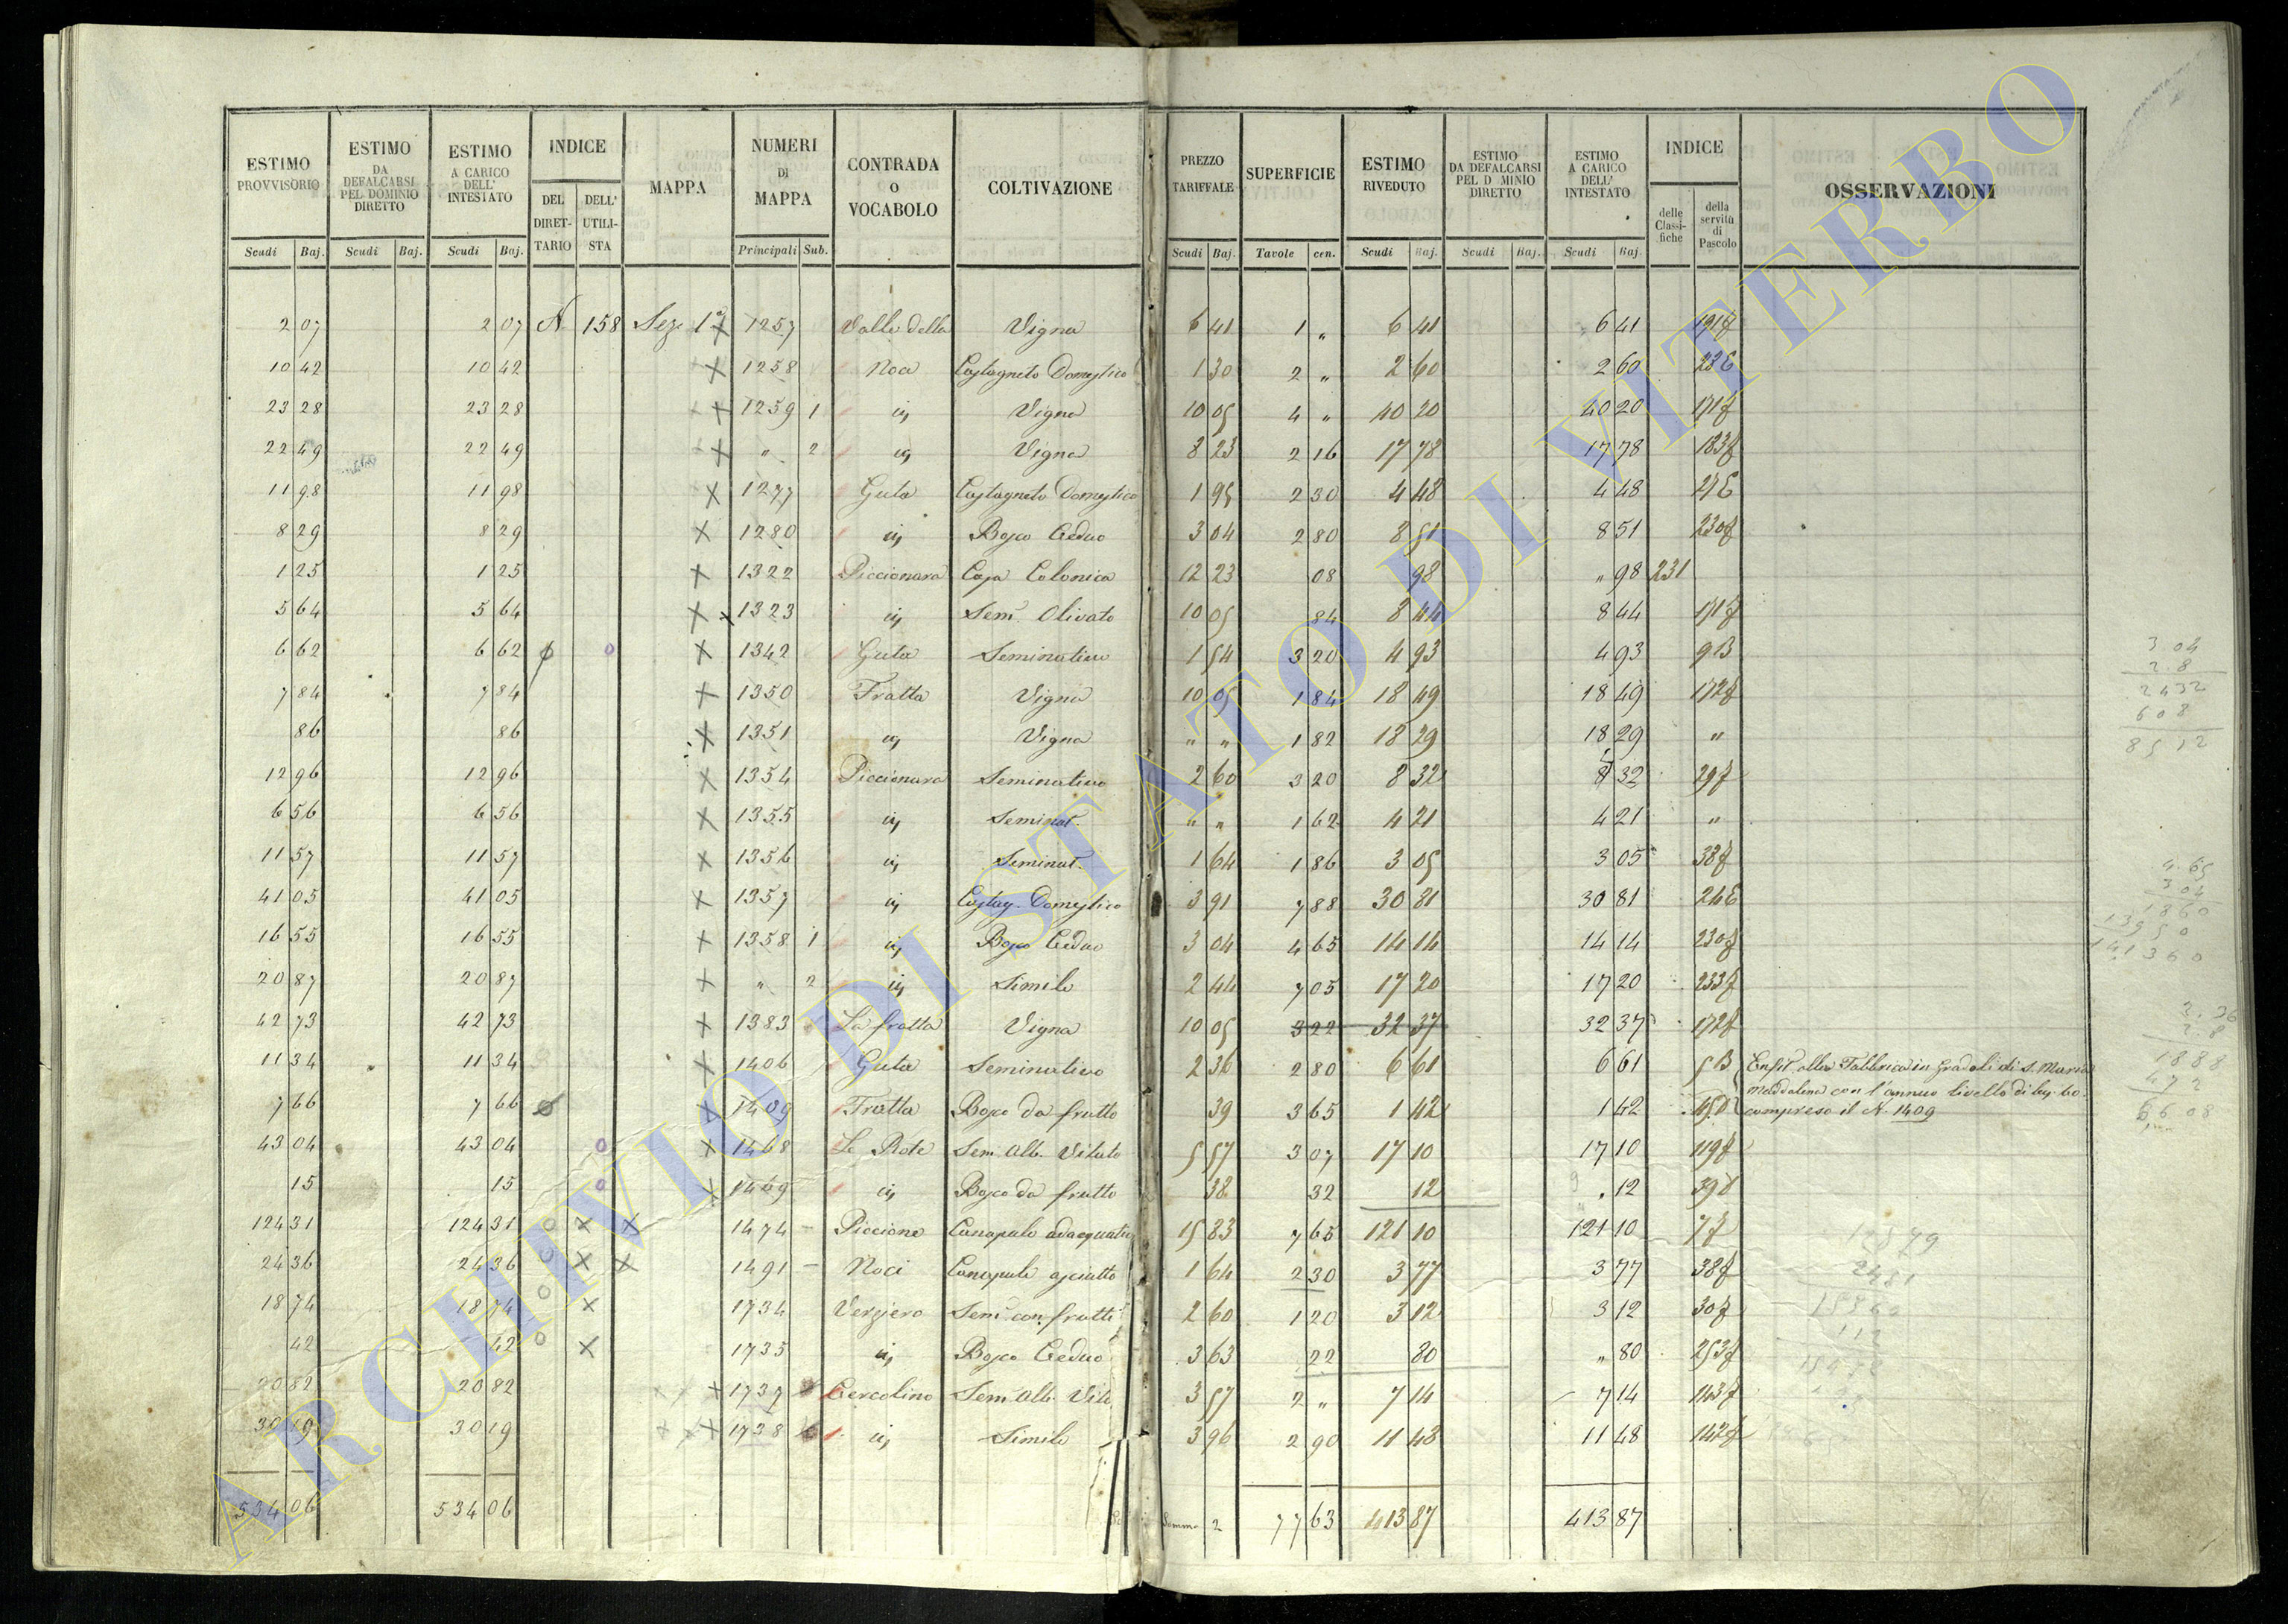 ESTIMO PROVVISORIO Scudi Baj.
ESTIMO DA DEFALCARSI PEL DOMINIO DIRETTO Scudi Baj.
ESTIMO A CARICO DELL' INTESTATO Scudi Baj.
INDICE DEL DIRET- TARIO DELL' UTILI- STA
MAPPA
NUMERI DI MAPPA Principali Sub.
CONTRADA O VOCABOLO
COLTIVAZIONE
PREZZO TARIFFALE Scudi Baj.
SUPERFICIE Tavole cen.
ESTIMO RIVEDUTO Scudi Baj.
ESTIMO DA DEFALCARSI PEL D MINIO DIRETTO Scudi Baj.
ESTIMO A CARICO DELL' INTESTATO Scudi Baj.
INDICE delle Classi- fiche della servitù di Pascolo
OSSERVAZIONI
2 07 2 07 A 158 Sez. 1ª 1257 Valle della Vigna 6 41 1 „ 6 41 6 41 191
10 42 10 42 1258 Noce Castagneto Domestico 1 30 2 „ 2 60 2 60 23E
23 28 23 28 1259 1 id Vigna 10 05 4 „ 40 20 40 20 171
22 49 22 49 „ 2 id Vigna 8 23 2 16 17 78 17 78 183
11 98 11 98 1277 Guta Castagneto Domestico 1 95 2 30 4 48 4 48 27E
8 29 8 29 1280 id Bosco Ceduo 3 04 2 80 8 51 8 51 230
1 25 1 25 1322 Piccionara Casa Colonica 12 23 08 98 „ 98 231
5 64 5 64 1323 id Sem. Olivato 10 05 84 8 44 8 44 171
6 62 6 62 1342 Guta Seminativo 1 54 3 20 4 93 4 93 9B
7 84 7 84 1350 Fratta Vigna 10 05 1 84 18 49 18 49 172
86 86 1351 id Vigna „ „ 1 82 18 29 18 29 „
12 96 12 96 1354 Piccionara Seminativo 2 60 3 20 8 32 8 32 29
6 56 6 56 1355 id Seminat. „ „ 1 62 4 21 4 21 „
11 57 11 57 1356 id Seminat. 1 64 1 86 3 05 3 05 38
41 05 41 05 1357 id Castag. Domestico 3 91 7 88 30 81 30 81 24E
16 55 16 55 1358 1 id Bosco Ceduo 3 04 4 65 14 14 14 14 230
20 87 20 87 „ 2 id Simile 2 44 7 05 17 20 17 20 233
42 73 42 73 1383 La fratta Vigna 10 05 3 22 32 37 32 37 172
11 34 11 34 1406 Guta Seminativo 2 36 2 80 6 61 6 61 5B Enfit. alla Fabbrica in Gradoli di S. Maria
Maddalena con l'annuo livello di
7 66 7 66 1409 Fratta Bosco da frutto 39 3 65 1 42 1 42 compreso il N. 1409
43 04 43 04 1468 Le Rote Sem. Alb. Vitato 5 57 3 07 17 10 17 10 119
15 15 1469 id Bosco da frutto 38 32 12 „ 12 39
124 31 124 31 1474 Piccione Canapule adacquativo 15 83 7 65 121 10 121 10 7
24 36 24 36 1491 Noci Canapule asciutto 1 64 2 30 3 77 3 77 38
18 74 18 74 1734 Verziero Sem. con frutti 2 60 1 20 3 12 3 12 30
42 42 1735 id Bosco Ceduo 3 63 22 80 „ 80 253
20 82 20 82 1737 Cercolino Sem. Alb. Vita 3 57 2 „ 7 14 7 14 143
30 19 30 19 1738 id Simile 3 96 2 90 11 48 11 48 142
534 06 534 06 Somma 2 77 63 413 87 413 87
3 04
2.8
2432
608
8512
4.65
3 04
1860
13950
141360
2.36
2.8
1888
472
6608
ARCHIVIO DI STATO DI VITERBO